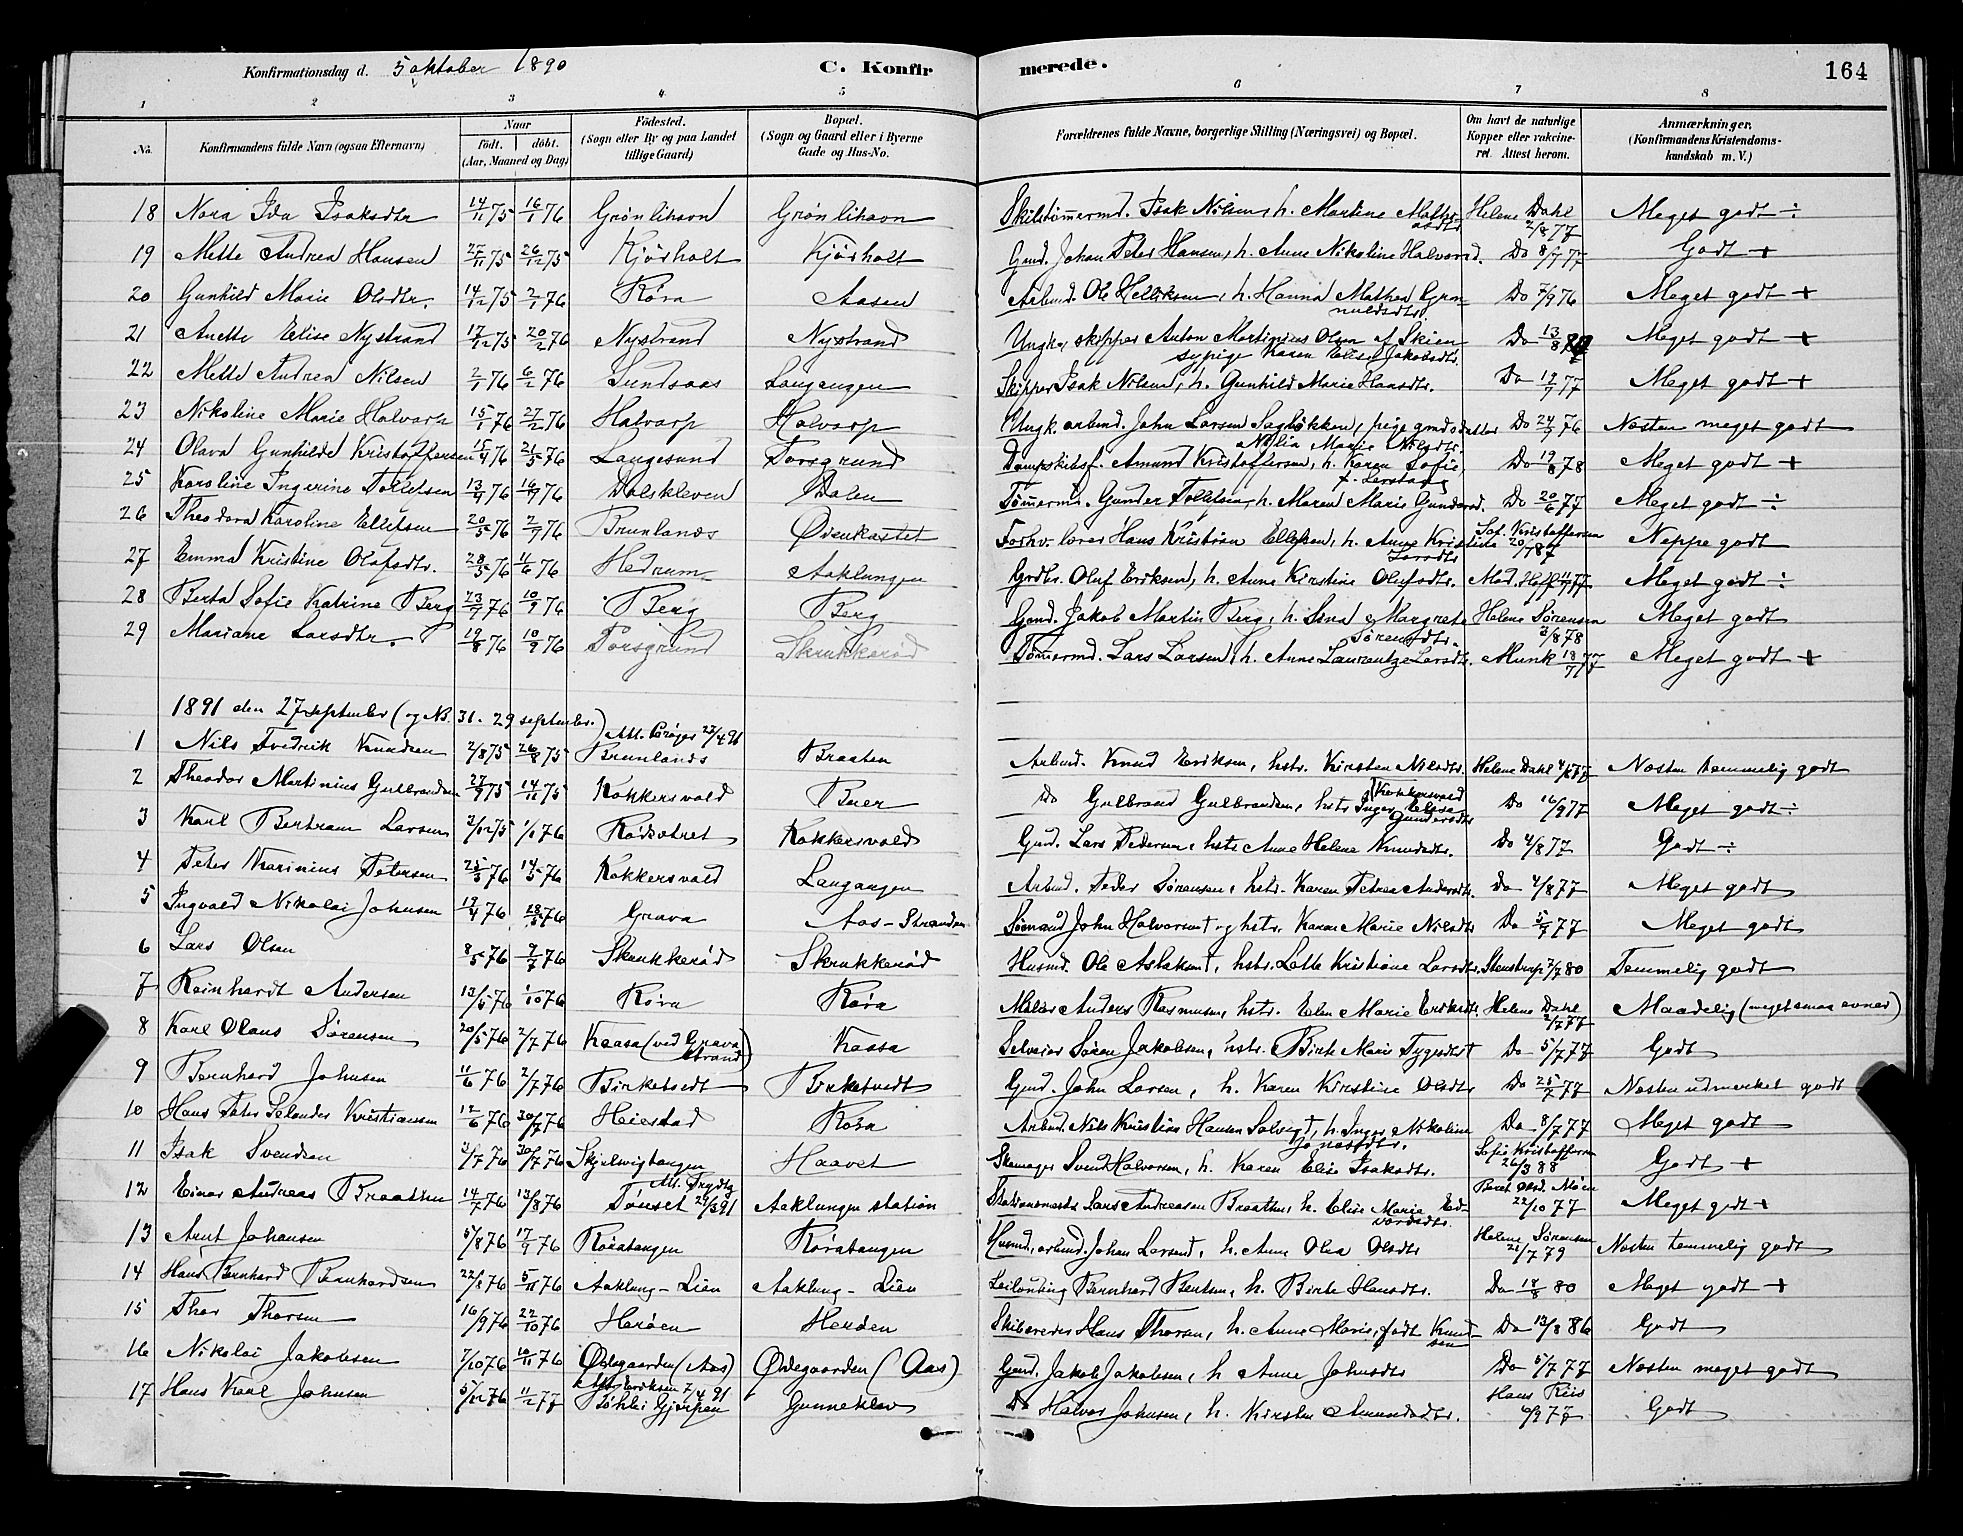 Konfirmationsdag d. 5 oktober 1890 C. Konfir merede. 164
1 2 3 4 5 6 7 8
No. Konfirmandens fulde Navn (ogsaa Efternavn) Naar født. døbt. (Aar, Maaned og Dag) Fødested. (Sogn eller By og paa Landet tillige Gaard) Bopæl. (Sogn og Gaard eller i Byerne Gade og Hus-No. Forældrenes fulde Navne, borgerlige Stilling (Næringsvei) og Bopæl. Om havt de naturlige Kopper eller vakcineret. Attest herom. Anmærkninger. (Konfirmandens Kristendomskundskab m. V.)
18 Nora Ida Isaksdtr 14/11 75 16/1 76 Grønlihavn Grønlihavn Skibstømermd. Isak Nilsen, h. Martine Helene Dahl 2/8 77 Meget godt ÷
19 Mette Andrea Hansen 27/11 75 26/12 75 Kjørholt Kjørholt Gmd. Johan Peter Hansen, h. Anne Nikoline Halvorsd. Do 8/7 77 Godt +
20 Gunhild Marie Olsdtr. 14/12 75 2/1 76 Røra Aasen Arbmd. Ole Helliksen, h. Hanna Mathea Do 7/9 76 Meget godt +
21 Anette Elise Nystrand 17/12 75 20/2 76 Nystrand Nystrand Ungk. skipper Anton Martinius Olsen af Skien sypige Karen Elise Jakobsdtr. Do 13/8 Meget godt +
22 Mette Andrea Nilsen 2/1 76 6/2 76 Sundsaas Langangen Skipper Isak Nilsen, h. Gunhild Marie Hansdtr. Do 19/7 77 Meget godt +
23 Nikoline Marie Halvarp 15/1 76 27/2 76 Halvarp Halvarp Ungk. arbmd. John Larsen Sagbakken, pige gmdsdatter Marie Nilsdtr. Do 24/9 76 Næsten meget godt
24 Olava Gunhilde Kristoffersen 15/4 76 21/5 76 Langesund Porsgrund Dampskibsf. Amund Kristoffersen, h. Karen Sofie, Do 19/8 78 Meget godt +
25 Karoline Ingerine Tollefsen 13/4 76 16/7 76 Dalskleven Dalen Tømermd. Gunder Tollefsen, h. Maren Marie Gundersd. Do 20/6 77 Meget godt ÷
26 Theodora Karoline Ellefsen 20/5 76 2/9 76 Brunlands Øvenkastet Forhv. lærer Hans Kristian Ellefsen, h. Anne Kristine Larsdtr Sof. Kristoffersen 20/7 87 Neppe godt
27 Emma Kristine Olafsdtr. 28/5 76 11/6 76 Hedrum Aaklungen Grdbr. Oluf Eriksen, h. Anne Kirstine Olufsdtr. Med. Hoff 11/7 77 Meget godt ÷
28 Berta Sofie Katrine Berg 23/7 76 10/9 76 Berg Berg Gmd. Jakob Martin Berg, h. Sina Margrete Sørensdtr. Helene Sørensen 2/8 78 Meget godt
29 Mariane Larsdtr. 19/8 76 10/9 76 Porsgrund Skrukkerød Tømermd. Lars Larsen, h. Anne Laurentze Larsdtr. Munk 18/7 77 Meget godt +
1891 den 27 september (og No. 31. 29 september.)
1 Nils Fredrik Knudsen 2/8 75 26/8 75 Att. Corøger 23/4 91 Brunlands Braaten Arbmd. Knud Eriksen, hstr. Kirsten Nilsdtr. Helene Dahl 4/8 77 Næsten temmelig godt
2 Theodor Martinius Gulbrandsen 27/9 75 14/11 75 Kokkersvold Buer Do Gulbrand Gulbrandsen, hstr Inger Elise Gundersdtr Kokkersvold Do 16/9 77 Meget godt ÷
3 Karl Bertram Larsen 2/12 75 1/1 76 Rødsætret Kokkersvold Gmd. Lars Pedersen, hstr Anne Helene Knudsdtr. Do 4/8 77 Godt ÷
4 Peter Karinius Petersen 25/3 76 14/5 76 Kokkersvold Langangen Arbmd. Peder Sørensen, hstr. Karen Petrea Andersdtr. Do 4/8 77 Meget godt
5 Ingvald Nikolai Johnsen 19/4 76 18/6 76 Grava Aas-Stranden Sømand John Halvorsen† og hstr. Karen Marie Nilsdtr Do 5/7 77 Meget godt
6 Lars Olsen 8/5 76 9/7 76 Skrukkerød Skrukkerød Husmd. Ole Aslaksen†, hstr. Lotte Kristiane Larsdtr. Stenstrup 7/7 80 Temmelig godt
7 Reinhardt Andersen 13/5 76 1/10 76 Røra Røra Maler Anders Rasmusen, hstr. Elen Marie Eriksdtr. Helene Dahl 2/7 77 Maadelig (meget smaa evner)
8 Karl Olaus Sørensen 20/5 76 2/7 76 Kaasa (ved Grava Strand) Kaasa Selveier Søren Jakobsen, hstr. Birte Marie Tygesdtr Do 5/7 77 Godt
9 Bernhard Johnsen 11/6 76 2/7 76 Birketvedt Birketvedt Gmd. John Larsen, h. Karen Kirstine Olsdtr Do 25/7 77 Næsten udmerket godt
10 Hans Peter Selander Kristiansen 12/6 76 30/7 76 Heiestad Røra Arbmd. Nils Kristian Hansen Solvig†, h. Inger Nikoline Jonasdtr. Do 8/7 77 Meget godt
11 Isak Svendsen 2/7 76 30/7 76 Skjelsvigtangen Haavet Skomager Svend Halvorsen, h. Karen Elise Isaksdtr. Sofie Kristoffersen 26/3 88 Godt +
12 Einar Andreas Braathen 14/7 76 13/8 76 Att. Trydts 29/3 91 Tønset Aaklungen station Stationsmester Lars Andreasen Braathen, h. Elise Marie Edvardsdtr. Beret Olsd. Moen 22/10 77 Meget godt +
13 Arnt Johansen 5/8 76 17/9 76 Røratangen Røratangen Husmd., arbmd. Johan Larsen†, h. Anne Olea Olsdtr Helene Sørensen 21/7 79 Næsten temmelig godt
14 Hans Bernhard Bernhardsen 22/8 76 5/11 76 Aaklung-Lien Aaklung-Lien Leilænding Bernhard Bentsen, h. Birte Hansdtr. Do 18/8 80 Meget godt +
15 Thor Thorsen 16/9 76 22/10 76 Herøen Herøen Skibsreder Hans Thorsen, h. Anne Marie, født Knudsen Do 13/8 86 Godt
16 Nikolai Jakobsen 7/10 76 10/11 76 Ødegaarden (Aas) Ødegaarden (Aas) Gmd. Jakob Jakobsen, h Anne Johnsdtr Do 5/7 77 Næsten meget godt
17 Hans Karl Johnsen 5/12 76 11/2 77 Att. Eriksen 7/4 91 Gjerpen Gunneklev Do Halvor Johnsen, h. Kirsten Amundsdtr. Hans Riis 6/9 77 Godt